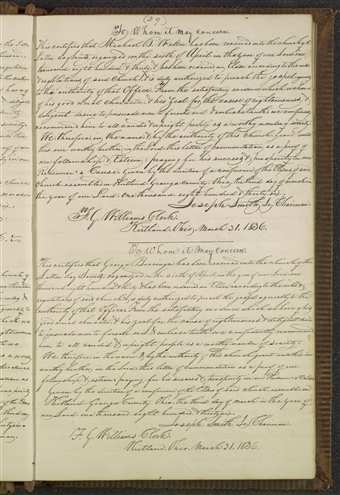 (29)
To Whom it May concern.
This certifies that Michael B. Welton has been received into the church of
Latter day Saints, organized on the sixth of April in the year of our Lord one
thousand eight hundred & thirty, & has been ordained an Elder according to the rules
& regulations of said Church, & is duly authorized to preach the gospel, agreeably
to the authority of that Office. From the satisfactory evidence which we have
of his good moral character, & his zeal for the cause of righteousness, &
diligent desire to persuade men to forsake evil & embrace truth, we confidently
recommend him to all candid & upright people, as a worthy member of society.
We, therefore, in the name, & by the authority of this Church, grant unto
this our worthy brother in the Lord, this letter of commendation as a proof of
our fellowship & Esteem; praying for his success & prosperity in our
Redeemer's Cause. Given by the direction of a conference of the Elders of said
Church assembled in Kirtland, Geauga County, Ohio, the third day of March in
the year of our Lord, one thousand eight hundred & thirty six.
Joseph Smith, Jr, Chairman.
F. G. Williams Clerk.
Kirtland, Ohio, March 31. 1836.
To Whom it May concern.
This certifies that George has been received into the church of the
Latter day Saints, organized on the sixth of April in the year of our Lord one
thousand eight hundred & thirty, & has been ordained an Elder according to the rules &
regulations of said church, & is duly authorized to preach the gospel agreeably to the
authority of that Office. From the satisfactory evidence which we have of his
good moral character, & his zeal for the cause of righteousness, & diligent desire
to persuade men to forsake evil & embrace truth, we confidently recommend
him to all candid & upright people as a worthy member of society.
We, therefore, in the name, & by the authority of this church, grant unto this our
worthy brother, in the Lord, this letter of commendation as a proof of our
fellowship & esteem; praying for his success & prosperity in our Redeemer's Cause.
Given by the direction of a conference of the Elders of said church assembled in
Kirtland, Geauga County, Ohio, the third day of March in the year of
our Lord one thousand eight hundred & thirty six.
Joseph Smith Jr, Chairman
F. G. Williams Clerk.
Kirtland, Ohio, March 31. 1836.